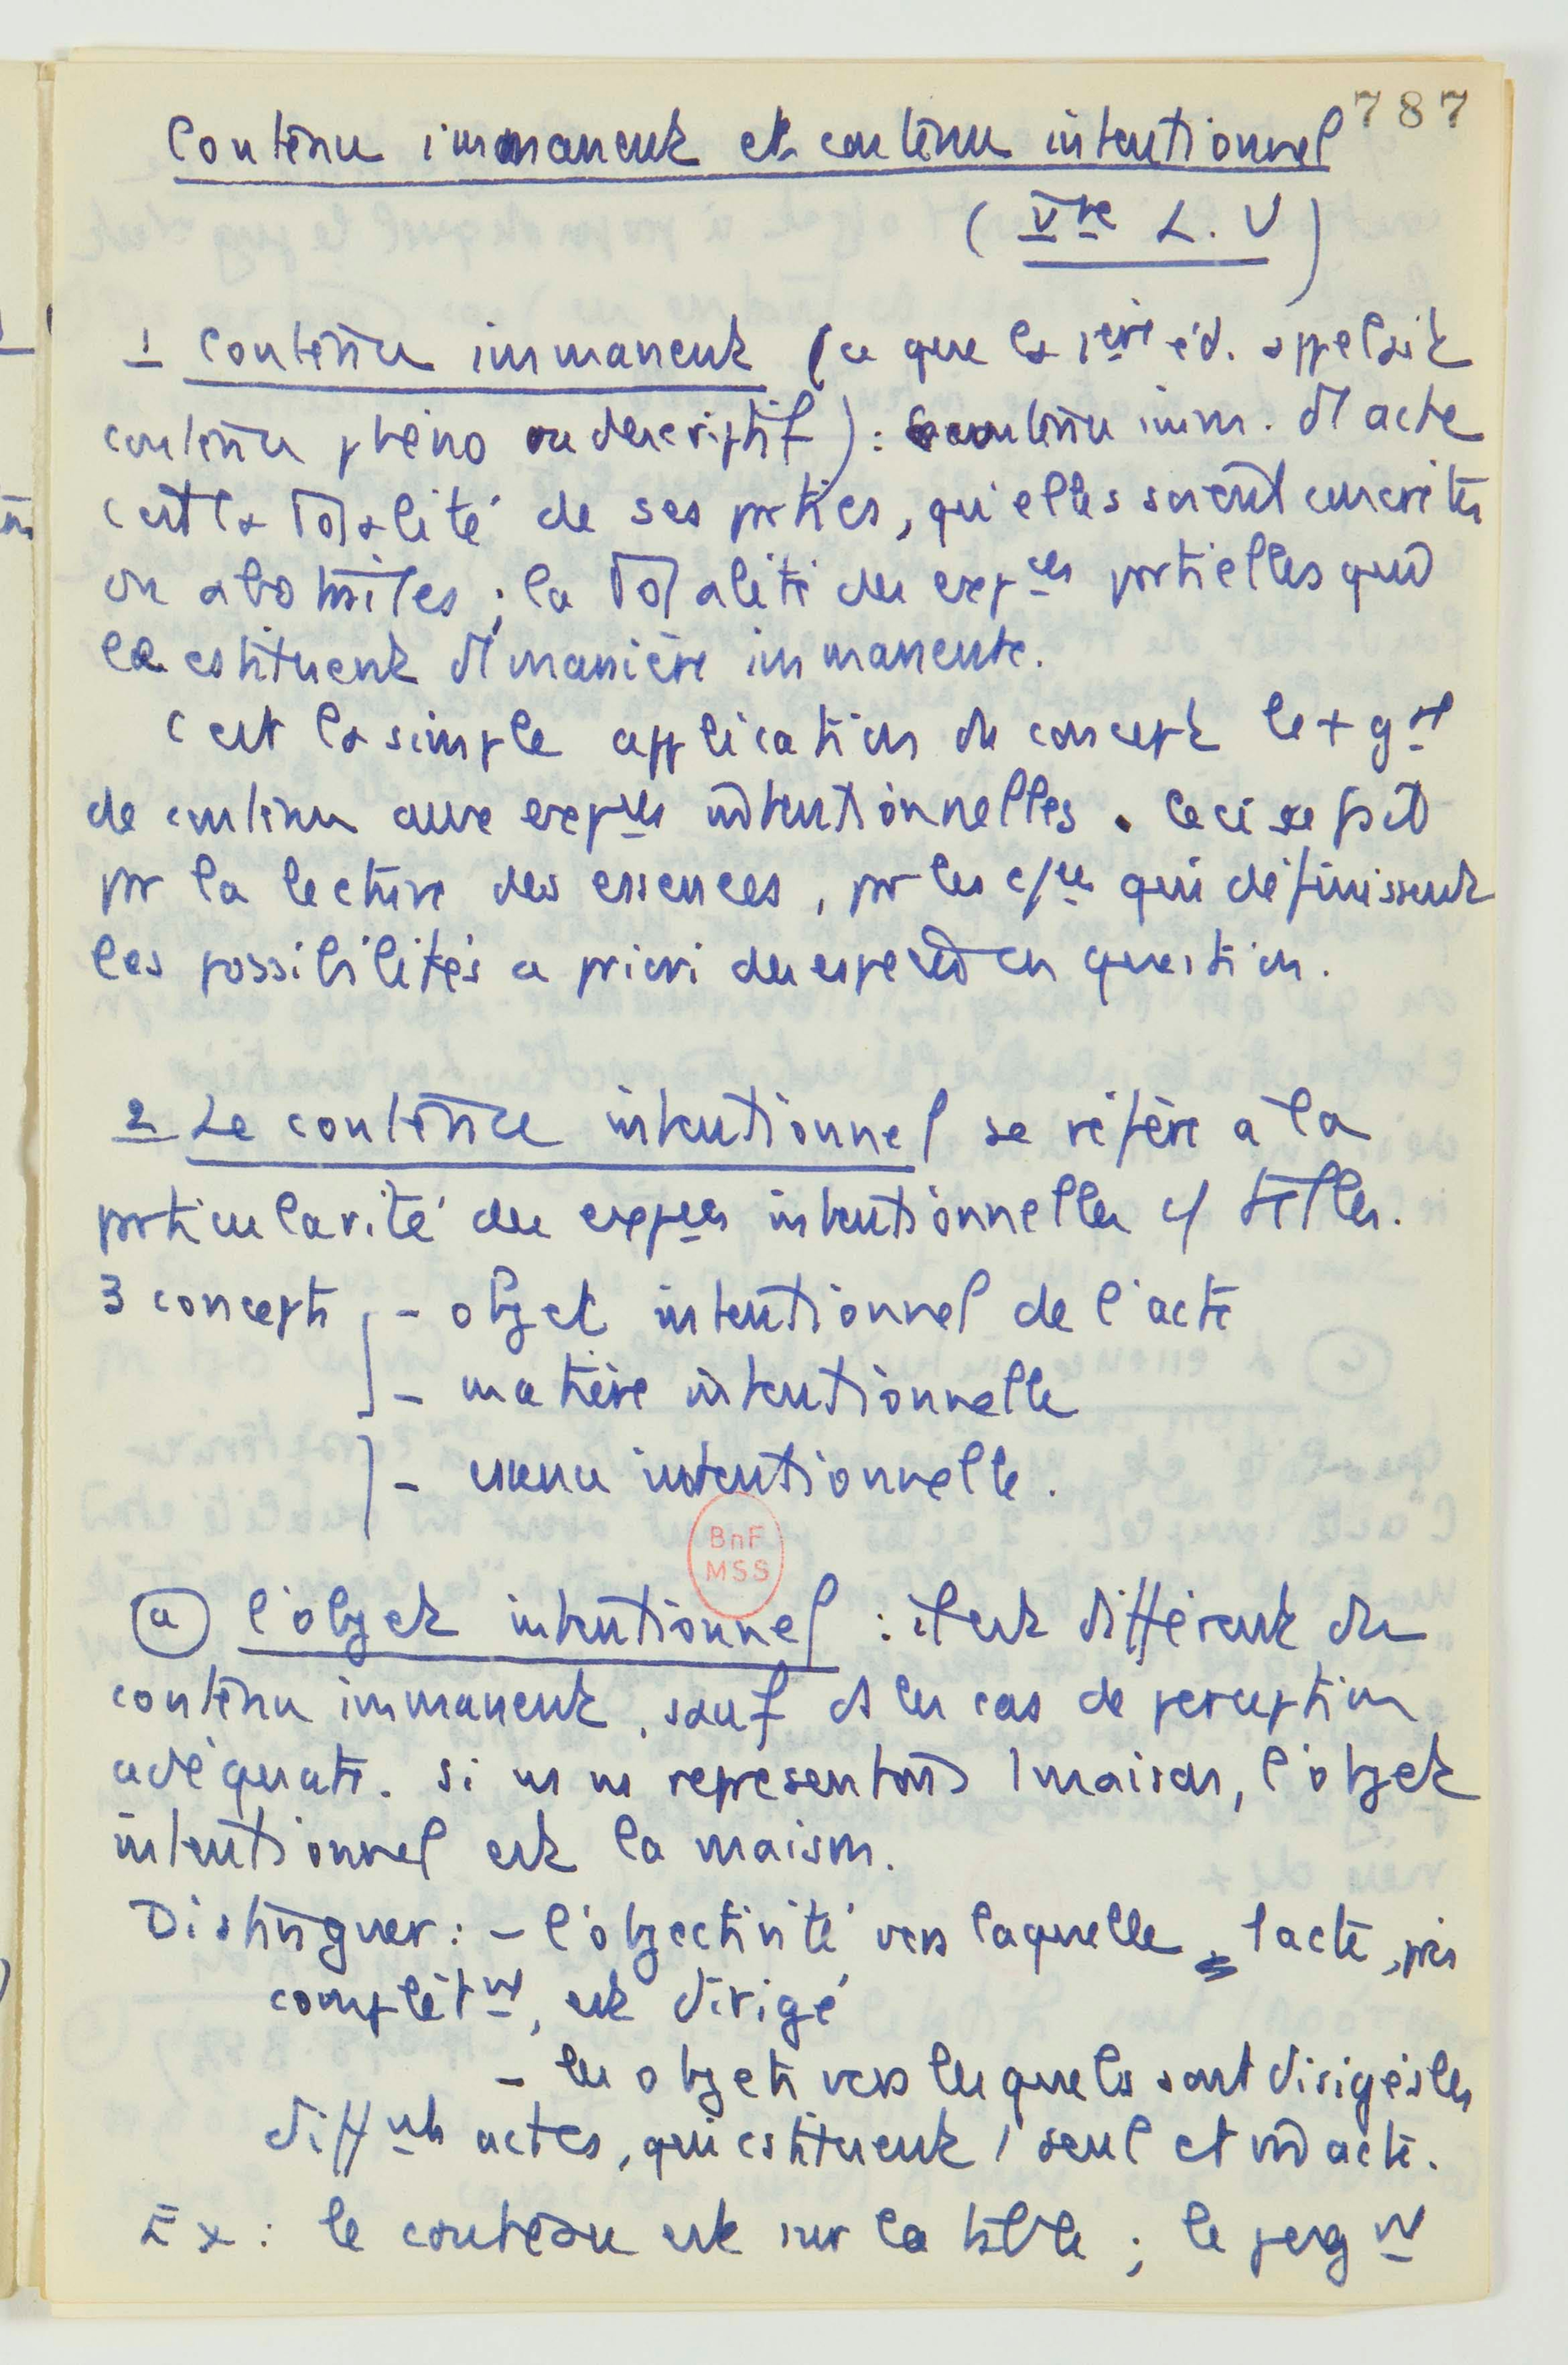 787
Contenu immanent et contenu intentionnel
(Vme L. U)
1 Contenu immanent (ce que la 1ère éd. appelait
contenu phéno ou descriptif) : contenu imm. d'1 acte
c'est la totalité de ses pties, qu'elles soient concrètes
ou abstraites ; la totalité des expces partielles qui
le cstituent d'1 manière immanente.
C'est la simple application du concept le + gal
de contenu aux expces intentionnelles. Ceci se fait
pr la lecture des essences, pr les qui définissent
les possibilités a priori des en question.
2 Le contenu intentionnel se réfère à la
pticularité des expces intentionnelles c/ telles.
3 concepts - objet intentionnel de l'acte
- matière intentionnelle
- essence intentionnelle.
(a) L'objet intentionnel : il est différent du
contenu immanent, sauf ds les cas de perception
adéquate. Si ns ns représentons 1 maison, l'objet
intentionnel est la maison.
Distinguer : - l'objectivité vers laquelle l'acte, pris
complètmt, est dirigé
- les objets vers lesquels sont dirigés les
diffnts actes, qui cstituent 1 seul et acte.
Ex : le couteau est sur la table ; le jugmt
BnF
MSS